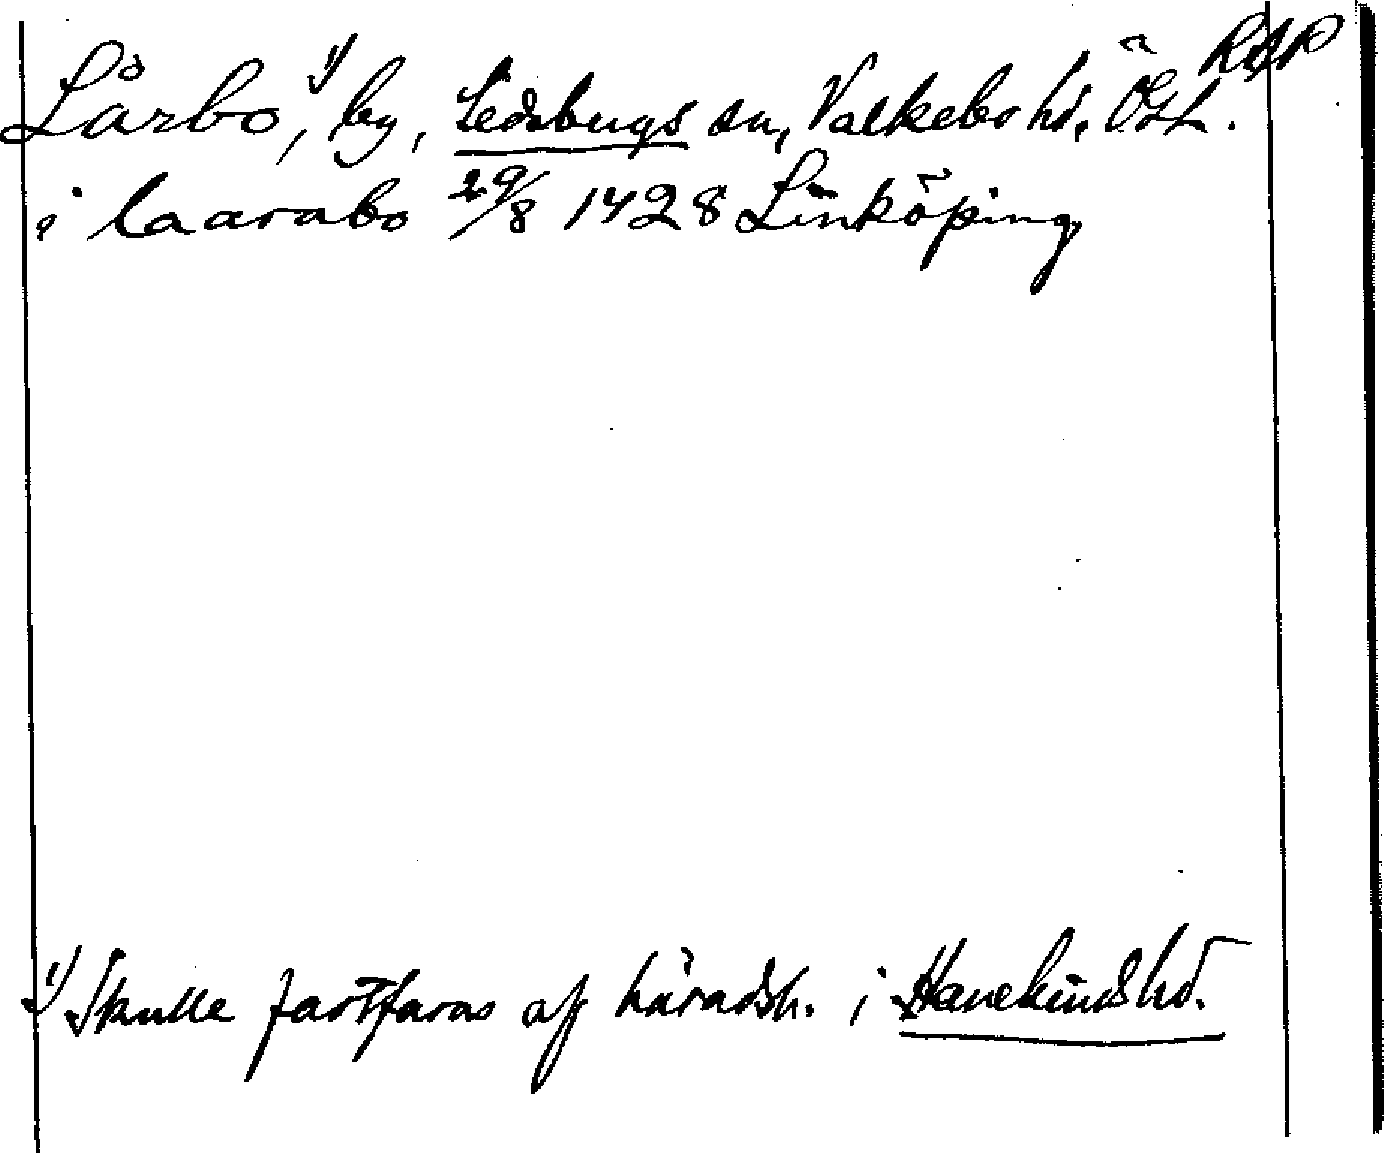 RAP
Lårbo,¹⁾ by, Ledsbergs sn, Valkebo hd, ÖGL.
i laarabo 29/8 1428 Linköping
¹⁾ Skulle fastfaras af häradsh. i Hanekinds hd.